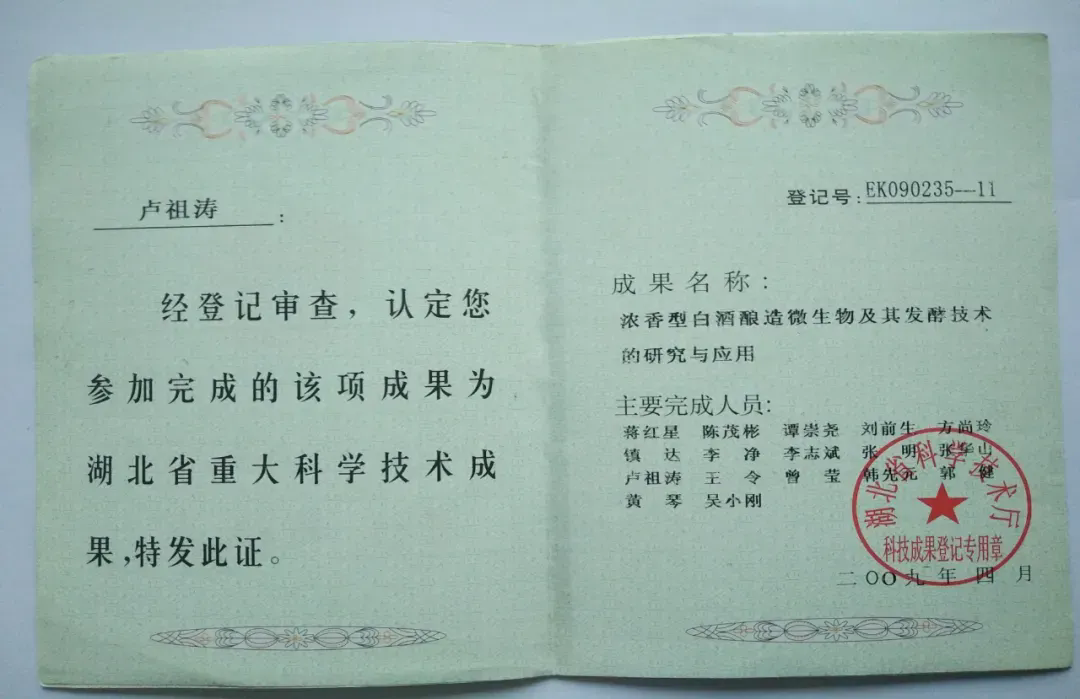 卢祖涛:
经登记审查，认定您
参加完成的该项成果为
湖北省重大科学技术成
果,特发此证。
登记号:EK090235—11
成果名称:
浓香型白酒酿造微生物及其发酵技术
的研究与应用
主要完成人员:
蒋红星 陈茂彬 谭崇尧 刘前生 方尚玲
镇达 李净 李志斌 张明 张华山
卢祖涛 王令 曾莹 韩先元 郭健
黄琴 吴小刚
湖北省科学技术厅
科技成果登记专用章
二〇〇九年四月